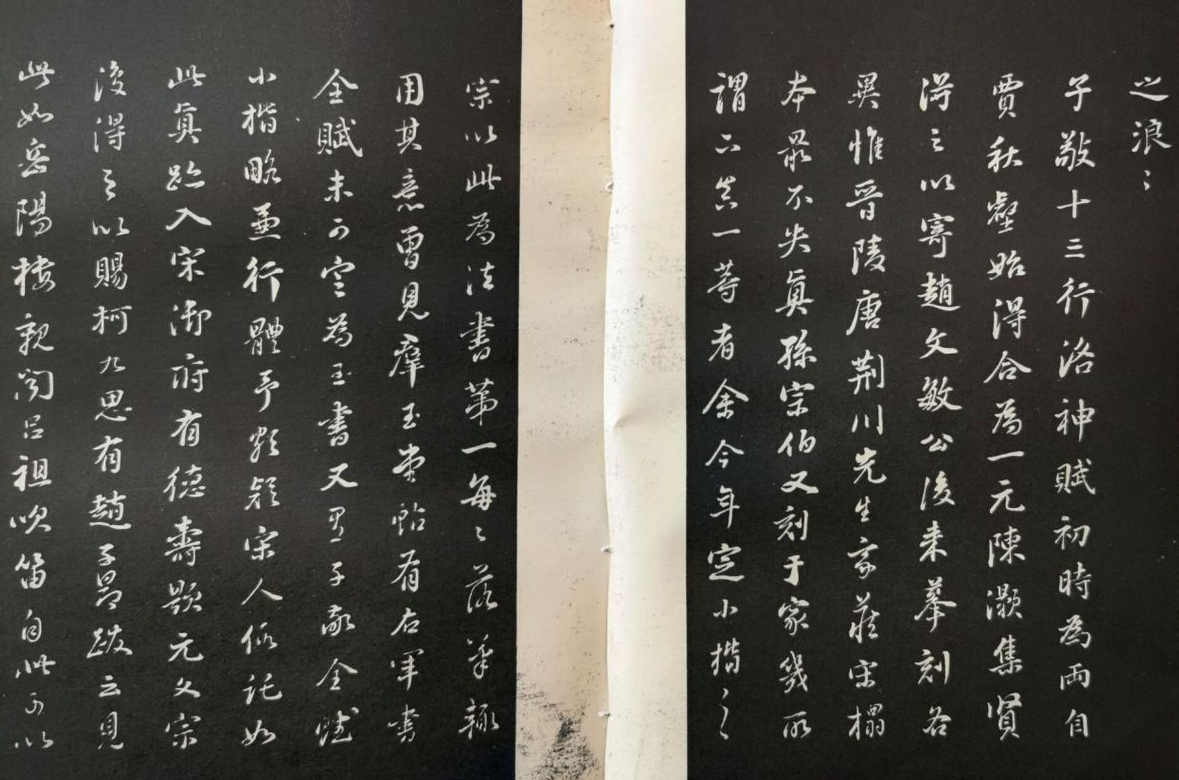 之浪〻
子敬十三行洛神賦初時為兩自
賈秋壑始得合為一元陳灝集賢
得之以寄趙文敏公後来摹刻各
異惟晉陵唐荆川先生家藏宋榻
本最不失真孫宗伯又刻于家幾所
謂下真一等者余今年定小楷之
宗以此為法書第一每〻落筆輒
用其意曾見羣玉堂帖有右軍書
全賦未可定為王書又見子敬全賦
小楷略兼行體予頗疑宋人假託如
此真跡入宋御府有德壽題元文宗
後得之以賜柯九思有趙子昂跋云見
此如岳陽樓親聞呂祖吹笛自此可以